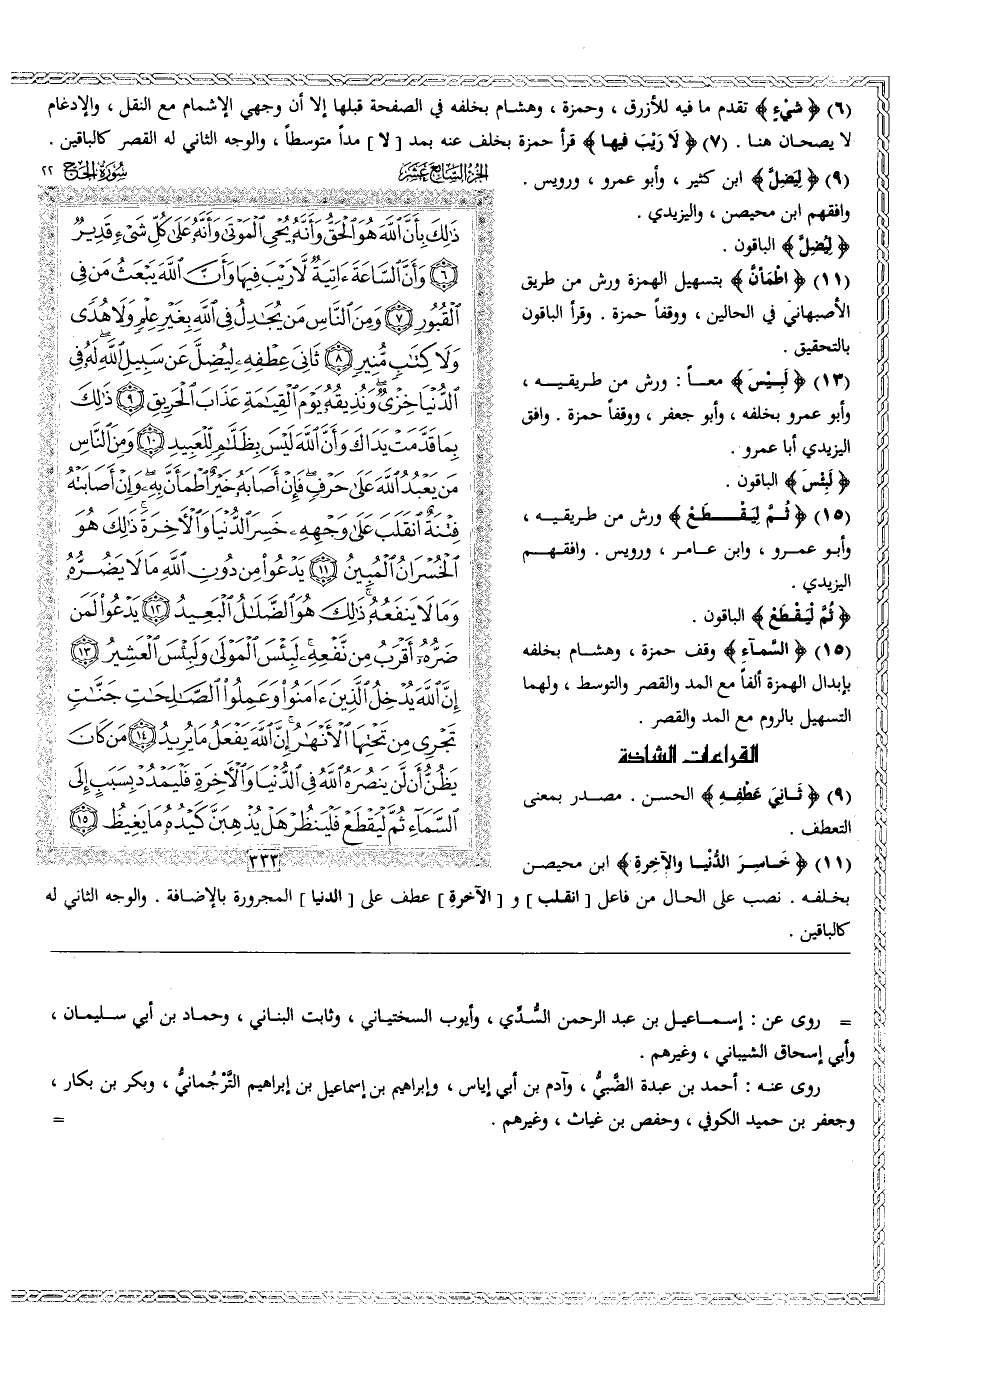 (٦) ﴿ شَيْءٍ ﴾ تقدم ما فيه للأزرق ، وحمزة ، وهشام بخلفه في الصفحة قبلها إلا أن وجهي الإشمام مع النقل ، والإدغام
لا يصحان هنا . (٧) ﴿ لَا رَيْبَ فِيها ﴾ قرأ حمزة بخلف عنه بمد [ لا ] مداً متوسطاً ، والوجه الثاني له القصر كالباقين .
(٩) ﴿ لِيَضِلَّ ﴾ ابن كثير ، وأبو عمرو ، ورويس .
وافقهم ابن محيصن ، واليزيدي .
﴿ لِيُضِلَّ ﴾ الباقون .
(١١) ﴿ اطْمَأَنَّ ﴾ بتسهيل الهمزة ورش من طريق
الأصبهاني في الحالين ، ووقفاً حمزة . وقرأ الباقون
بالتحقيق .
(١٣) ﴿ لَبِيْسَ ﴾ معـاً : ورش من طـريقيـــه ،
وأبو عمرو بخلفه ، وأبو جعفر ، ووقفاً حمزة . وافق
اليزيدي أبا عمرو .
﴿ لَبِئْسَ ﴾ الباقون .
(١٥) ﴿ ثُـمَّ لِيَـقْـــطَـعْ ﴾ ورش من طريقيـــه ،
وأبـو عمـــرو ، وابن عـامـر ، ورويس . وافقـهــم
اليزيدي .
﴿ ثُمَّ لْيَـقْطَعْ ﴾ الباقون .
(١٥) ﴿ السَّمآءِ ﴾ وقف حمزة ، وهشـام بخلفه
بإبدال الهمزة ألفاً مع المد والقصر والتوسط ، ولهما
التسهيل بالروم مع المد والقصر .
القراءات الشاذة
(٩) ﴿ ثَـانِيَ عَطْفِـهِ ﴾ الحسن . مصـدر بمعنى
التعطف .
(١١) ﴿ خَـاسِـرَ الدُّنْيـا والآخِرةِ ﴾ ابن محيصـن
بخلفـه . نصب على الحـال من فاعل [ انقلب ] و [ الآخرةِ ] عطف على [ الدنيا ] المجرورة بالإضافة . والوجه الثاني له
كالباقين .
الجزء السابع عشر سورة الحج ٢٢
ذَٰلِكَ بِأَنَّ ٱللَّهَ هُوَ ٱلْحَقُّ وَأَنَّهُۥ يُحْىِ ٱلْمَوْتَىٰ وَأَنَّهُۥ عَلَىٰ كُلِّ شَىْءٍ قَدِيرٌ
٦ وَأَنَّ ٱلسَّاعَةَ ءَاتِيَةٌ لَّا رَيْبَ فِيهَا وَأَنَّ ٱللَّهَ يَبْعَثُ مَن فِى
ٱلْقُبُورِ ٧ وَمِنَ ٱلنَّاسِ مَن يُجَٰدِلُ فِى ٱللَّهِ بِغَيْرِ عِلْمٍ وَلَا هُدًى
وَلَا كِتَٰبٍ مُّنِيرٍ ٨ ثَانِىَ عِطْفِهِۦ لِيُضِلَّ عَن سَبِيلِ ٱللَّهِ لَهُۥ فِى
ٱلدُّنْيَا خِزْىٌ وَنُذِيقُهُۥ يَوْمَ ٱلْقِيَٰمَةِ عَذَابَ ٱلْحَرِيقِ ٩ ذَٰلِكَ
بِمَا قَدَّمَتْ يَدَاكَ وَأَنَّ ٱللَّهَ لَيْسَ بِظَلَّٰمٍ لِّلْعَبِيدِ ١٠ وَمِنَ ٱلنَّاسِ
مَن يَعْبُدُ ٱللَّهَ عَلَىٰ حَرْفٍ فَإِنْ أَصَابَهُۥ خَيْرٌ ٱطْمَأَنَّ بِهِۦ وَإِنْ أَصَابَتْهُ
فِتْنَةٌ ٱنقَلَبَ عَلَىٰ وَجْهِهِۦ خَسِرَ ٱلدُّنْيَا وَٱلْءَاخِرَةَ ذَٰلِكَ هُوَ
ٱلْخُسْرَانُ ٱلْمُبِينُ ١١ يَدْعُوا۟ مِن دُونِ ٱللَّهِ مَا لَا يَضُرُّهُۥ
وَمَا لَا يَنفَعُهُۥ ذَٰلِكَ هُوَ ٱلضَّلَٰلُ ٱلْبَعِيدُ ١٢ يَدْعُوا۟ لَمَن
ضَرُّهُۥٓ أَقْرَبُ مِن نَّفْعِهِۦ لَبِئْسَ ٱلْمَوْلَىٰ وَلَبِئْسَ ٱلْعَشِيرُ ١٣
إِنَّ ٱللَّهَ يُدْخِلُ ٱلَّذِينَ ءَامَنُوا۟ وَعَمِلُوا۟ ٱلصَّٰلِحَٰتِ جَنَّٰتٍ
تَجْرِى مِن تَحْتِهَا ٱلْأَنْهَٰرُ إِنَّ ٱللَّهَ يَفْعَلُ مَا يُرِيدُ ١٤ مَن كَانَ
يَظُنُّ أَن لَّن يَنصُرَهُ ٱللَّهُ فِى ٱلدُّنْيَا وَٱلْءَاخِرَةِ فَلْيَمْدُدْ بِسَبَبٍ إِلَى
ٱلسَّمَآءِ ثُمَّ لْيَقْطَعْ فَلْيَنظُرْ هَلْ يُذْهِبَنَّ كَيْدُهُۥ مَا يَغِيظُ ١٥
٣٣٣
= روى عن : إسـمـاعيـل بن عبد الرحمن السُّدِّي ، وأيوب السختيـاني ، وثابت البنـاني ، وحماد بن أبي سـليمـان ،
وأبي إسحاق الشيباني ، وغيرهم .
روى عنـه : أحمد بن عبدة الضَّبيُّ ، وآدم بن أبي إياس ، وإبراهيم بن إسماعيل بن إبراهيم التَّرْجُمانيُّ ، وبكر بن بكار ،
وجعفر بن حميد الكوفي ، وحفص بن غياث ، وغيرهم . =